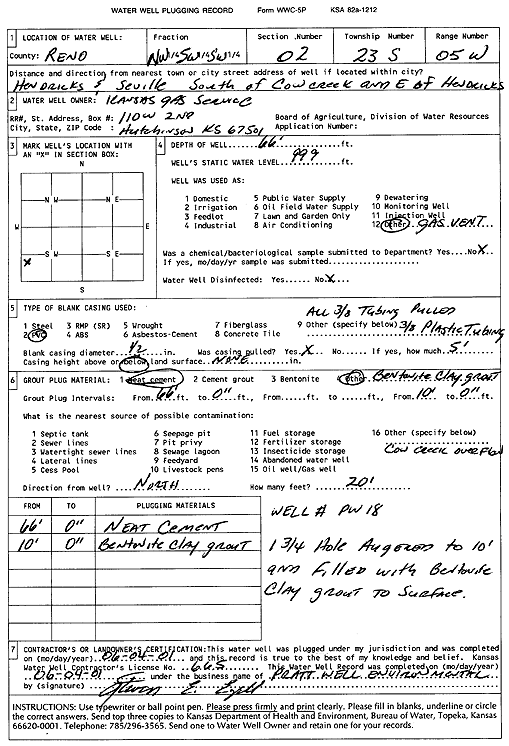 WATER WELL PLUGGING RECORD Form WWC-5P KSA 82a-1212
1 LOCATION OF WATER WELL: Fraction Section Number Township Number Range Number
County: RENO NW 1/4 SW 1/4 SW 1/4 02 23 S 05 W
Distance and direction from nearest town or city street address of well if located within city?
Hendricks & Seville South of Cow creek and E of Hendricks
2 WATER WELL OWNER: KANSAS GAS SERVICE
RR#, St. Address, Box #: 110 W 2ND Board of Agriculture, Division of Water Resources
City, State, ZIP Code : Hutchinson KS 67501 Application Number:
3 MARK WELL'S LOCATION WITH AN "X" IN SECTION BOX:
N
N W N E
W E
X S W S E
S
4 DEPTH OF WELL....66'....ft.
WELL'S STATIC WATER LEVEL...999...ft.
WELL WAS USED AS:
1 Domestic 5 Public Water Supply 9 Dewatering
2 Irrigation 6 Oil Field Water Supply 10 Monitoring Well
3 Feedlot 7 Lawn and Garden Only 11 Injection Well
4 Industrial 8 Air Conditioning 12 Other GAS VENT
Was a chemical/bacteriological sample submitted to Department? Yes....No X..
If yes, mo/day/yr sample was submitted......
Water Well Disinfected: Yes..... No X...
5 TYPE OF BLANK CASING USED: ALL 3/8 Tubing PULLED
1 Steel 3 RMP (SR) 5 Wrought 7 Fiberglass 9 Other (specify below) 3/8 Plastic Tubing
2 PVC 4 ABS 6 Asbestos-Cement 8 Concrete Tile
Blank casing diameter...1/2...in. Was casing pulled? Yes.X... No..... If yes, how much..5'..
Casing height above or below land surface...NONE...in.
6 GROUT PLUG MATERIAL: 1 Neat cement 2 Cement grout 3 Bentonite 4 Other Bentonite Clay grout
Grout Plug Intervals: From..66'.ft. to..0"..ft., From......ft. to......ft., From.10'. to..0"..ft.
What is the nearest source of possible contamination:
1 Septic tank 6 Seepage pit 11 Fuel storage 16 Other (specify below)
2 Sewer lines 7 Pit privy 12 Fertilizer storage
3 Watertight sewer lines 8 Sewage lagoon 13 Insecticide storage Cow creek overflow
4 Lateral lines 9 Feedyard 14 Abandoned water well
5 Cess Pool 10 Livestock pens 15 Oil well/Gas well
Direction from well?...North... How many feet?...20'...
FROM TO PLUGGING MATERIALS
66' 0" NEAT CEMENT
10' 0" Bentonite Clay grout
WELL # PW 18
1 3/4 Hole Augered to 10'
and Filled with Bentonite
Clay grout to Surface.
7 CONTRACTOR'S OR LANDOWNER'S CERTIFICATION: This water well was plugged under my jurisdiction and was completed
on (mo/day/year)..06-04-01.. and this record is true to the best of my knowledge and belief. Kansas
Water Well Contractor's License No. ..665.... This Water Well Record was completed on (mo/day/year)
..06-04-01.. under the business name of PRATT WELL ENVIRONMENTAL
by (signature) Steven E.
INSTRUCTIONS: Use typewriter or ball point pen. Please press firmly and print clearly. Please fill in blanks, underline or circle
the correct answers. Send top three copies to Kansas Department of Health and Environment, Bureau of Water, Topeka, Kansas
66620-0001. Telephone: 785/296-3565. Send one to Water Well Owner and retain one for your records.